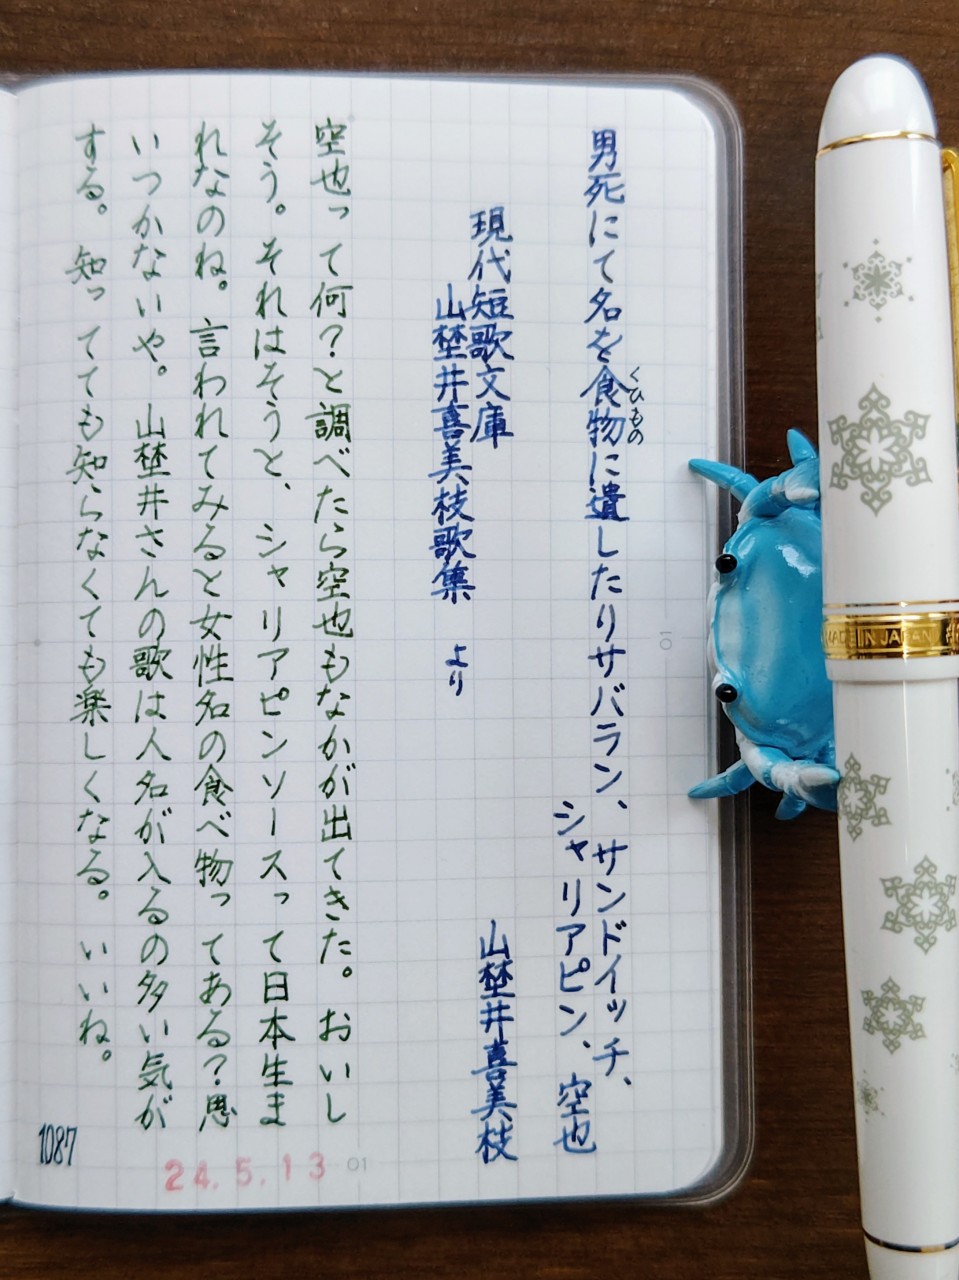 男死にて名を食物に遺したりサバラン、サンドイッチ、
くひもの
シャリアピン、空也
山埜井喜美枝
現代短歌文庫
山埜井喜美枝歌集 より
空也って何?と調べたら空也もなかが出てきた。おいし
そう。それはそうと、シャリアピンソースって日本生ま
れなのね。言われてみると女性名の食べ物ってある?思
いつかないや。山埜井さんの歌は人名が入るの多い気が
する。知ってても知らなくても楽しくなる。いいね。
1087
24.5.13
01
10
MADE IN JAPAN